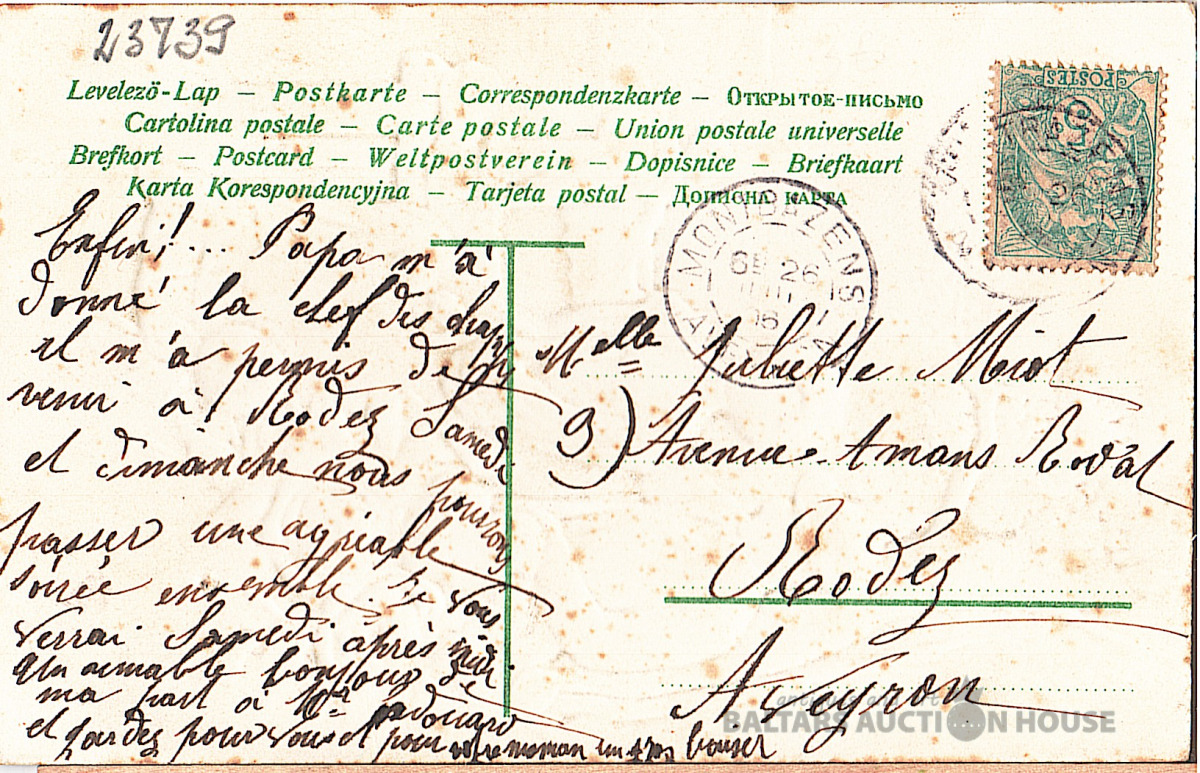 23739
Levelezö-Lap — Postkarte — Correspondenzkarte — Открытое-письмо
Cartolina postale — Carte postale — Union postale universelle
Brefkort — Postcard — Weltpostverein — Dopisnice — Briefkaart
Karta Korespondencyjna — Tarjeta postal — Дописна карта
POSTES
MONTBAZENS
26
Enfin! ... Papa m'a
donné la clef des champs
il m'a permis de
venir à Rodez Samedi
et dimanche nous pourrons
passer une agréable
soirée ensemble. Je vous
verrai Samedi après midi
Un aimable bonjour de
ma part à Mr Edouard
et gardez pour vous et pour votre maman un gros baiser
Melle Juliette Miot
9) Avenue Amans Rodat
Rodez
Aveyron
BALTARS AUCTION HOUSE